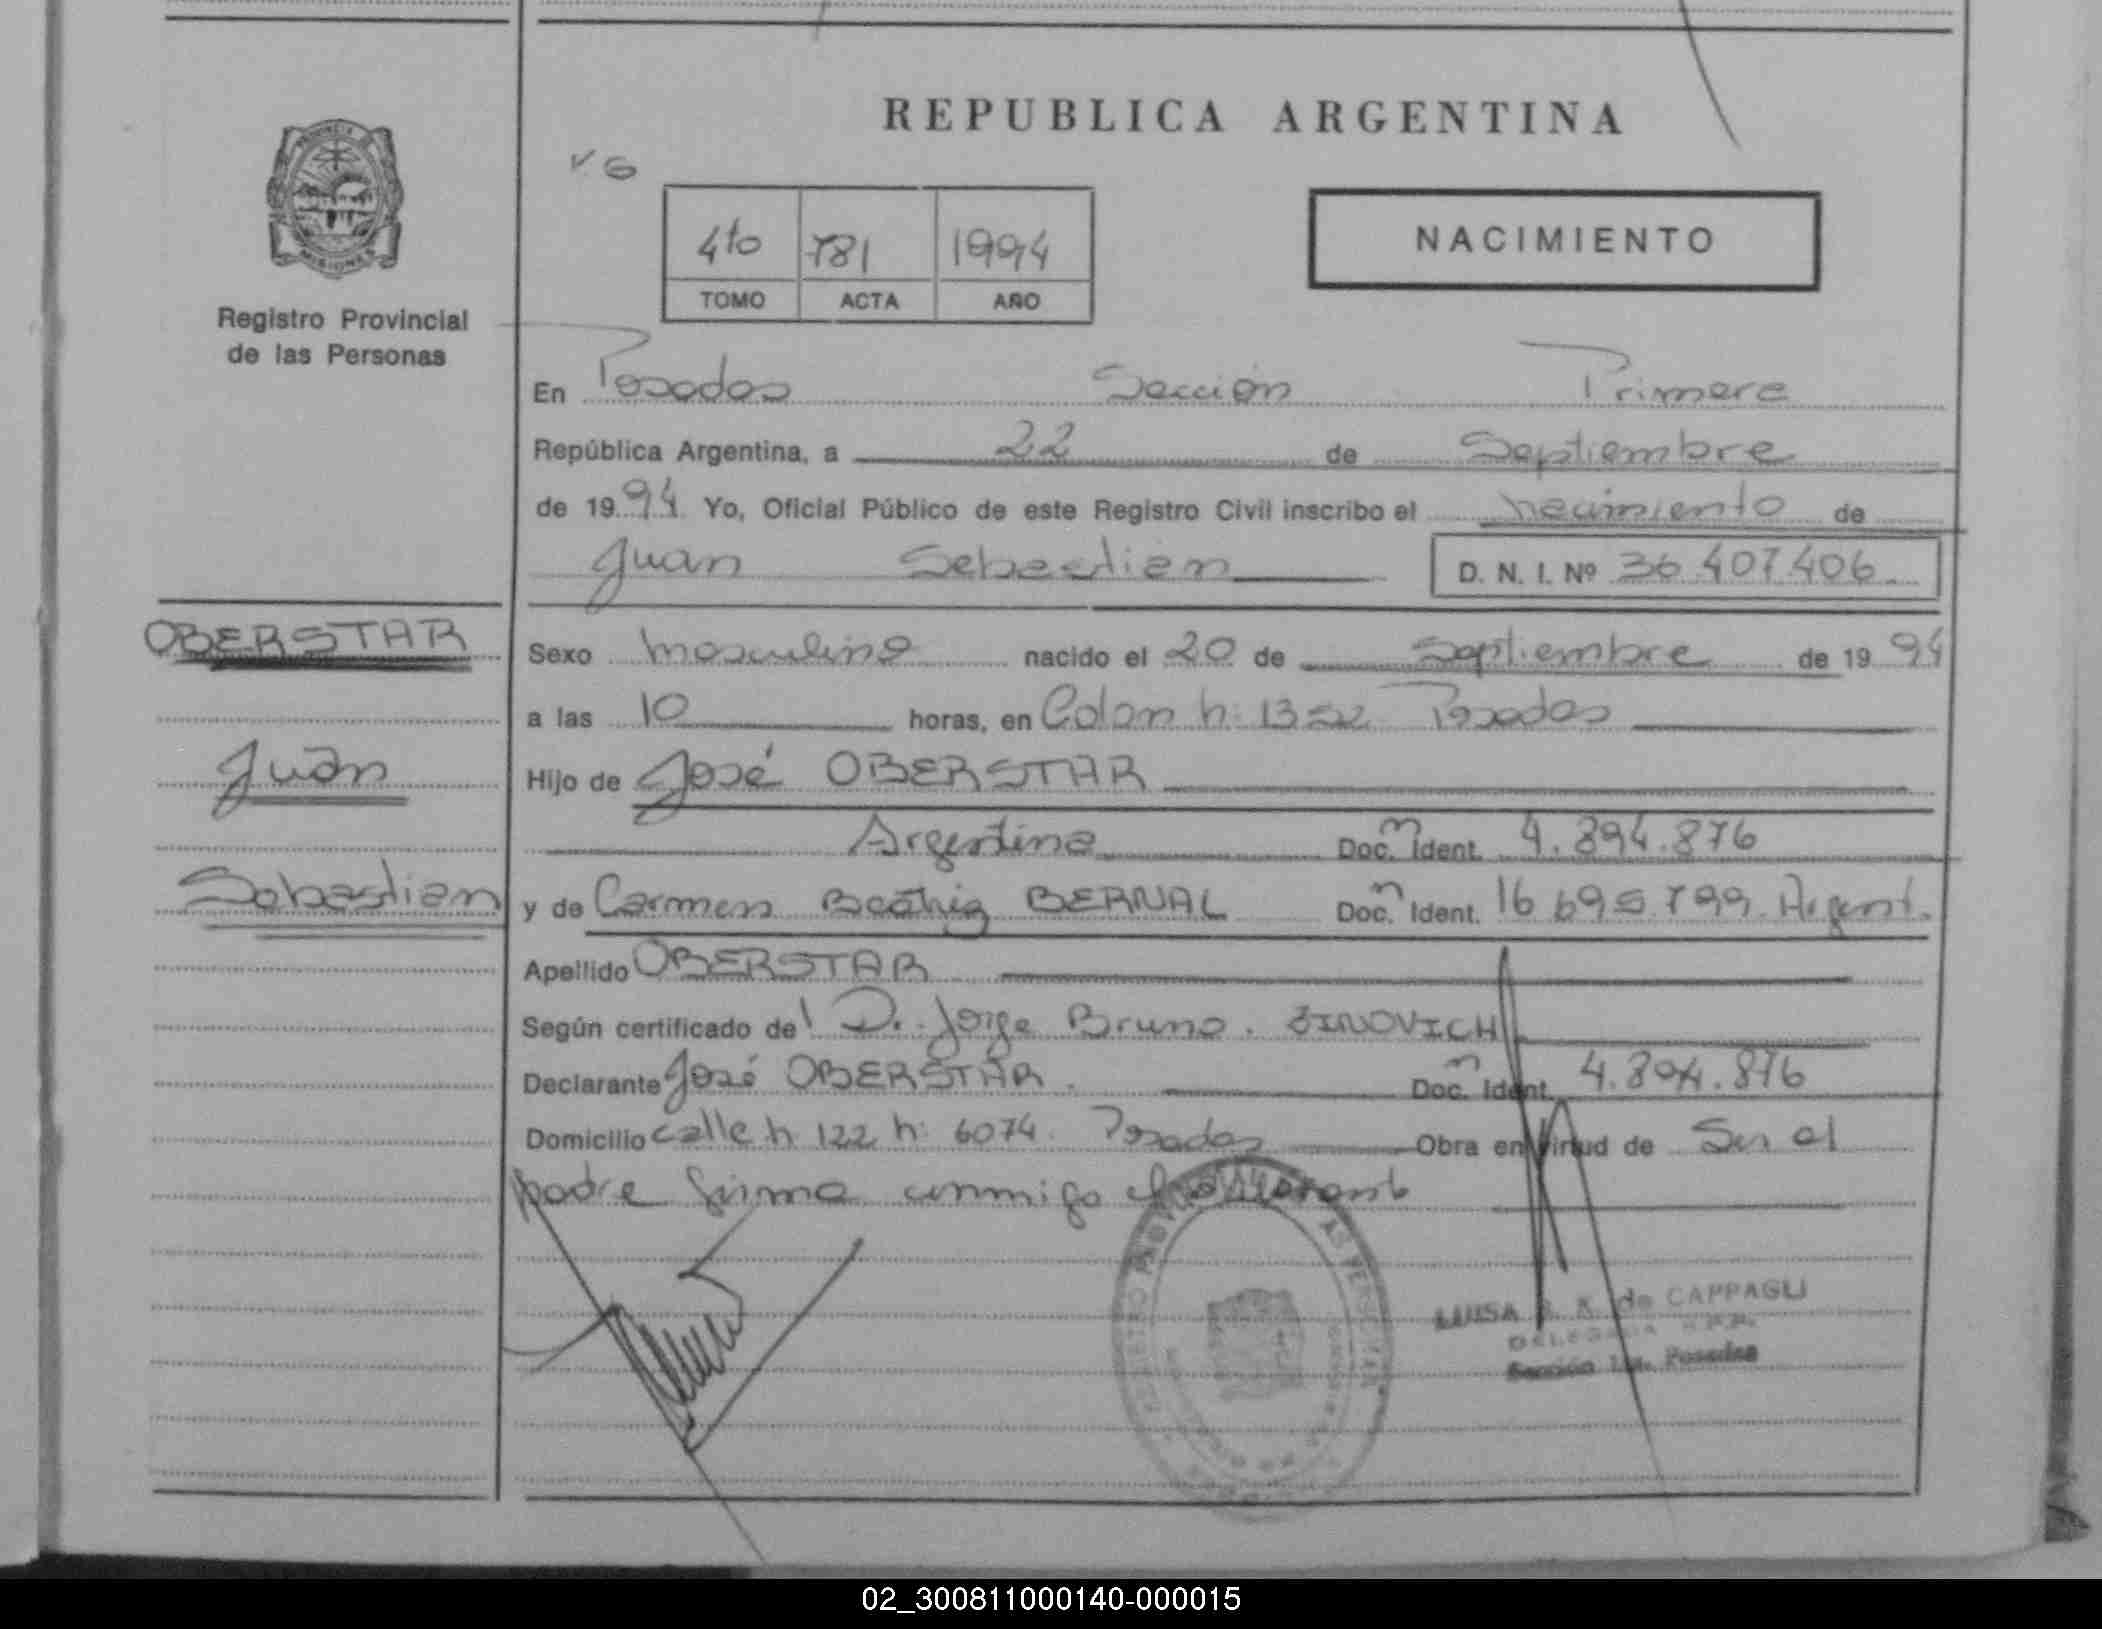 REPUBLICA ARGENTINA
PROVINCIA
MISIONES
Registro Provincial
de las Personas
4to 781 1994
TOMO ACTA AÑO
NACIMIENTO
En Posadas Sección Primera
República Argentina, a 22 de Septiembre
de 1994 Yo, Oficial Público de este Registro Civil inscribo el nacimiento de
Juan Sebastián D. N. I. Nº 36.407.406
OBERSTAR
Juan
Sebastian
Sexo masculino nacido el 20 de Septiembre de 1994
a las 10 horas, en Colon n: 1352 Posadas
Hijo de José OBERSTAR
Argentino Doc. Ident. 4.894.876
y de Carmen Beatriz BERNAL Doc. Ident. 16 695 799 Argent.
Apellido OBERSTAR
Según certificado de D. Jorge Bruno. ZINOVICH
Declarante José OBERSTAR. Doc. Ident. 4.894.876
Domicilio calle n 122 n: 6074. Posadas Obra en virtud de Ser el
padre firma conmigo
de CAPPAGLI
Sección 1ra. Posadas
02_300811000140-000015